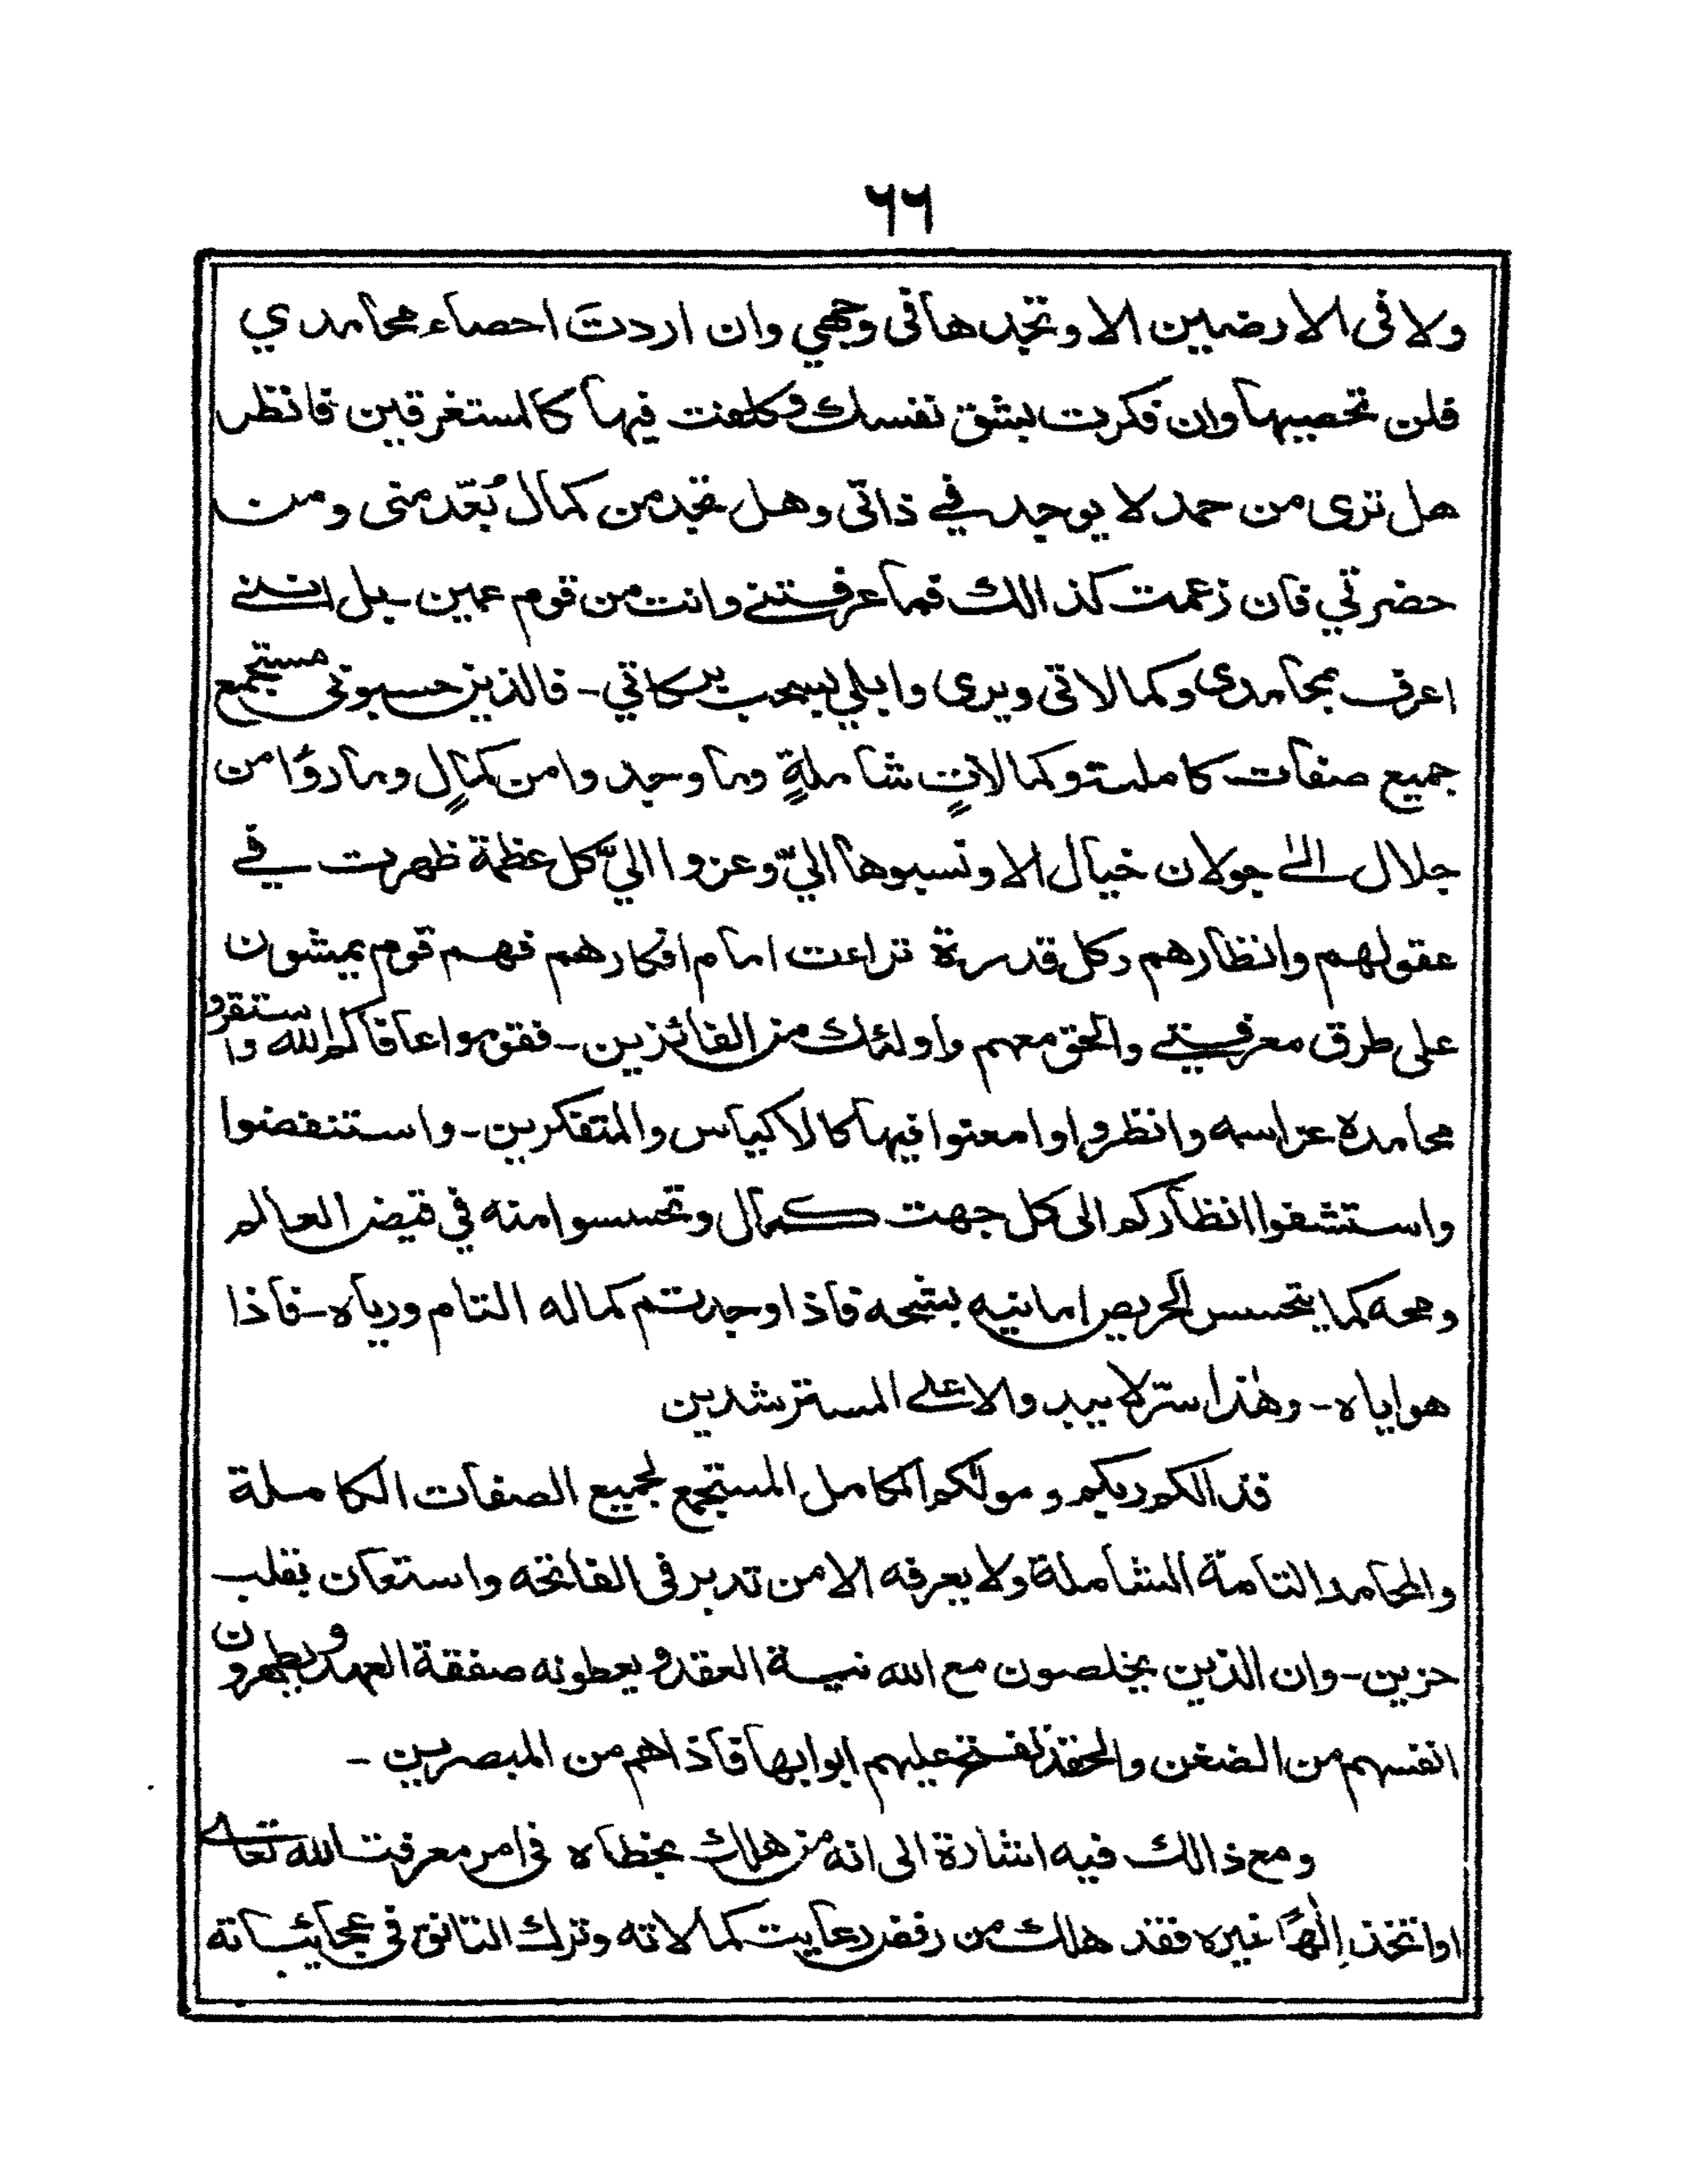 ٦٦
ولا فى الارضين الا وتجدها فى وجهي وان اردتَ احصاء محامدي
فلن تحصيها وان فكرت بشق نفسك وكلفت فيها كالمستغرقين فانظر
هل ترى من حمد لا يوجد في ذاتى وهل تجد من كمال بُعّد منى ومن
حضرتي فان زعمت كذالك فما عرفتنى وانت من قوم عمين - بل اننى
اعرف بمحامدى وكمالاتى ويرى وابلي بسحب بركاتي - فالذين حسبونى مستجمع
جميع صفات كاملة وكمالاتٍ شاملةٍ وما وجدوا من كمالٍ وما رؤا من
جلال الى جولان خيال الا ونسبوها اليّ وعزوا اليّ كل عظمة ظهرت في
عقولهم وانظارهم وكل قدرة تراءت امام افكارهم فهم قوم يمشون
على طرق معرفتى والحق معهم واولئك من الفائزين - فقوموا عافاكم الله واستقروا
محامده عز اسمه وانظروا وامعنوا فيها كالاكياس والمتفكرين - واستنفضوا
واستشفوا انظاركم الى كل جهت كمال وتحسسوا منه في قيض العالم
ومحه كما يتحسس الحريص امانيه بشحه فاذا وجدتم كماله التام ورياه - فاذا
هو اياه - وهٰذا سرّ لا يبدو الا على المسترشدين
فذالكم ربكم ومولكم الكامل المستجمع لجميع الصفات الكاملة
والمحامد التامة الشاملة ولا يعرفه الا من تدبر فى الفاتحه واستعان بقلب
حزين - وان الذين يخلصون مع الله نية العقد ويعطونه صفقة العهد ويطهرون
انفسهم من الضغن والحقد تفتح عليهم ابوابها فاذا هم من المبصرين -
ومع ذالك فيه اشارة الى انه من هلك بخطاه فى امر معرفت الله تعالى
او اتخذ اِلٰهًا غيره فقد هلك من رفض رعايت كمالاته وترك التانق فى عجائباته